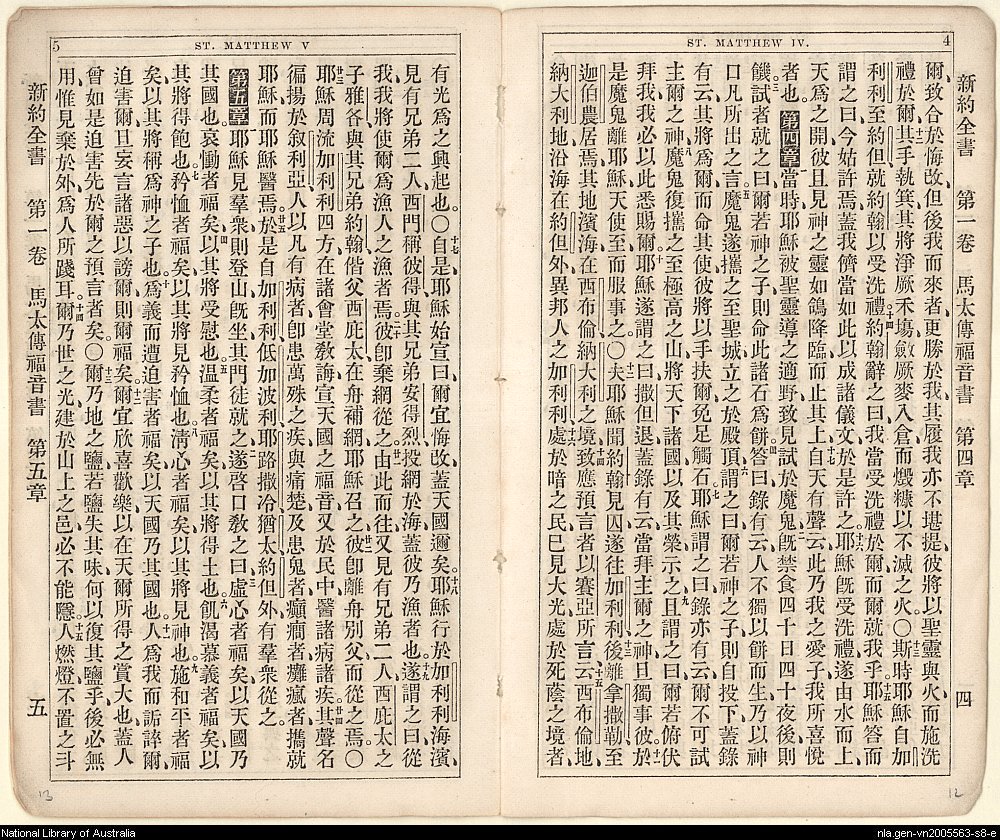 ST. MATTHEW IV. 4
新約全書 第一卷 馬太傳福音書 第四章 四
爾、致合於悔改、但後我而來者、更勝於我、其履我亦不堪提、彼將以聖靈與火、而施洗
禮於爾、其手執箕、其將淨厥禾塲、斂厥麥入倉、而燬糠以不滅之火。〇斯時耶穌自加
利利至約但、就約翰以受洗禮、約翰辭之曰、我當受洗禮於爾、而爾就我乎、耶穌答而
謂之曰、今姑許焉、蓋我儕當如此以成諸儀文、於是許之、耶穌旣受洗禮、遂由水而上、
天爲之開、彼且見神之靈、如鴿降臨而止其上、自天有聲云、此乃我之愛子、我所喜悅
者也。第四章 當時耶穌被聖靈導之適野、致見試於魔鬼、旣禁食四十日四十夜、後則
饑、試者就之曰、爾若神之子、則命此諸石爲餅、答曰、錄有云、人不獨以餅而生、乃以神
口凡所出之言、魔鬼遂攜之至聖城、立之於殿頂、謂之曰、爾若神之子、則自投下、蓋錄
有云、其將爲爾而命其使、彼將以手扶爾、免足觸石、耶穌謂之曰、錄亦有云、爾不可試
主爾之神、魔鬼復攜之至極高之山、將天下諸國、以及其榮示之、且謂之曰、爾若俯伏
拜我、我必以此悉賜爾、耶穌遂謂之曰、撒但退、蓋錄有云、當拜主爾之神、且獨事彼、於
是魔鬼離耶穌、天使至而服事之。〇夫耶穌聞約翰見囚、遂往加利利、後離拿撒勒、至
迦伯農居焉、其地濱海、在西布倫、納大利之境、致應預言者以賽亞所言云、西布倫地、
納大利地、沿海在約但外、異邦人之加利利、處於暗之民、已見大光、處於死蔭之境者、
5 ST. MATTHEW V
新約全書 第一卷 馬太傳福音書 第五章 五
有光爲之興起也。〇自是耶穌始宣曰、爾宜悔改、蓋天國邇矣、耶穌行於加利利海濱、
見有兄弟二人、西門稱彼得、與其兄弟安得烈、投網於海、蓋彼乃漁者也、遂謂之曰、從
我、我將使爾爲漁人之漁者焉、彼卽棄網從之、由此而往、又見有兄弟二人、西庇太之
子雅各、與其兄弟約翰、偕父西庇太在舟補網、耶穌召之、彼卽離舟別父而從之焉。〇
耶穌周流加利利四方、在諸會堂教誨、宣天國之福音、又於民中醫諸病諸疾、其聲名
徧揚於敘利亞、人以凡有病者、卽患萬殊之疾與痛楚、及患鬼者、癲癇者、癱瘋者、攜就
耶穌而耶穌醫焉、於是自加利利、低加波利、耶路撒冷、猶太、約但外、有羣衆從之。
第五章 耶穌見羣衆則登山、旣坐、其門徒就之、遂啓口敎之曰、虛心者福矣、以天國乃
其國也。哀慟者福矣、以其將受慰也。溫柔者福矣、以其將得土也。飢渴慕義者福矣、以
其將得飽也。矜恤者福矣、以其將見矜恤也。清心者福矣、以其將見神也。施和平者福
矣、以其將稱爲神之子也。爲義而遭迫害者福矣、以天國乃其國也。人爲我而詬誶爾、
迫害爾、且妄言諸惡以謗爾、則爾福矣、爾宜欣喜歡樂、以在天爾所得之賞大也、蓋人
曾如是迫害先於爾之預言者矣。〇爾乃地之鹽、若鹽失其味、何以復其鹽乎、後必無
用、惟見棄於外、爲人所踐耳。爾乃世之光、建於山上之邑、必不能隱、人燃燈、不置之斗
13
12
National Library of Australia
nla.gen-vn2005563-s8-e